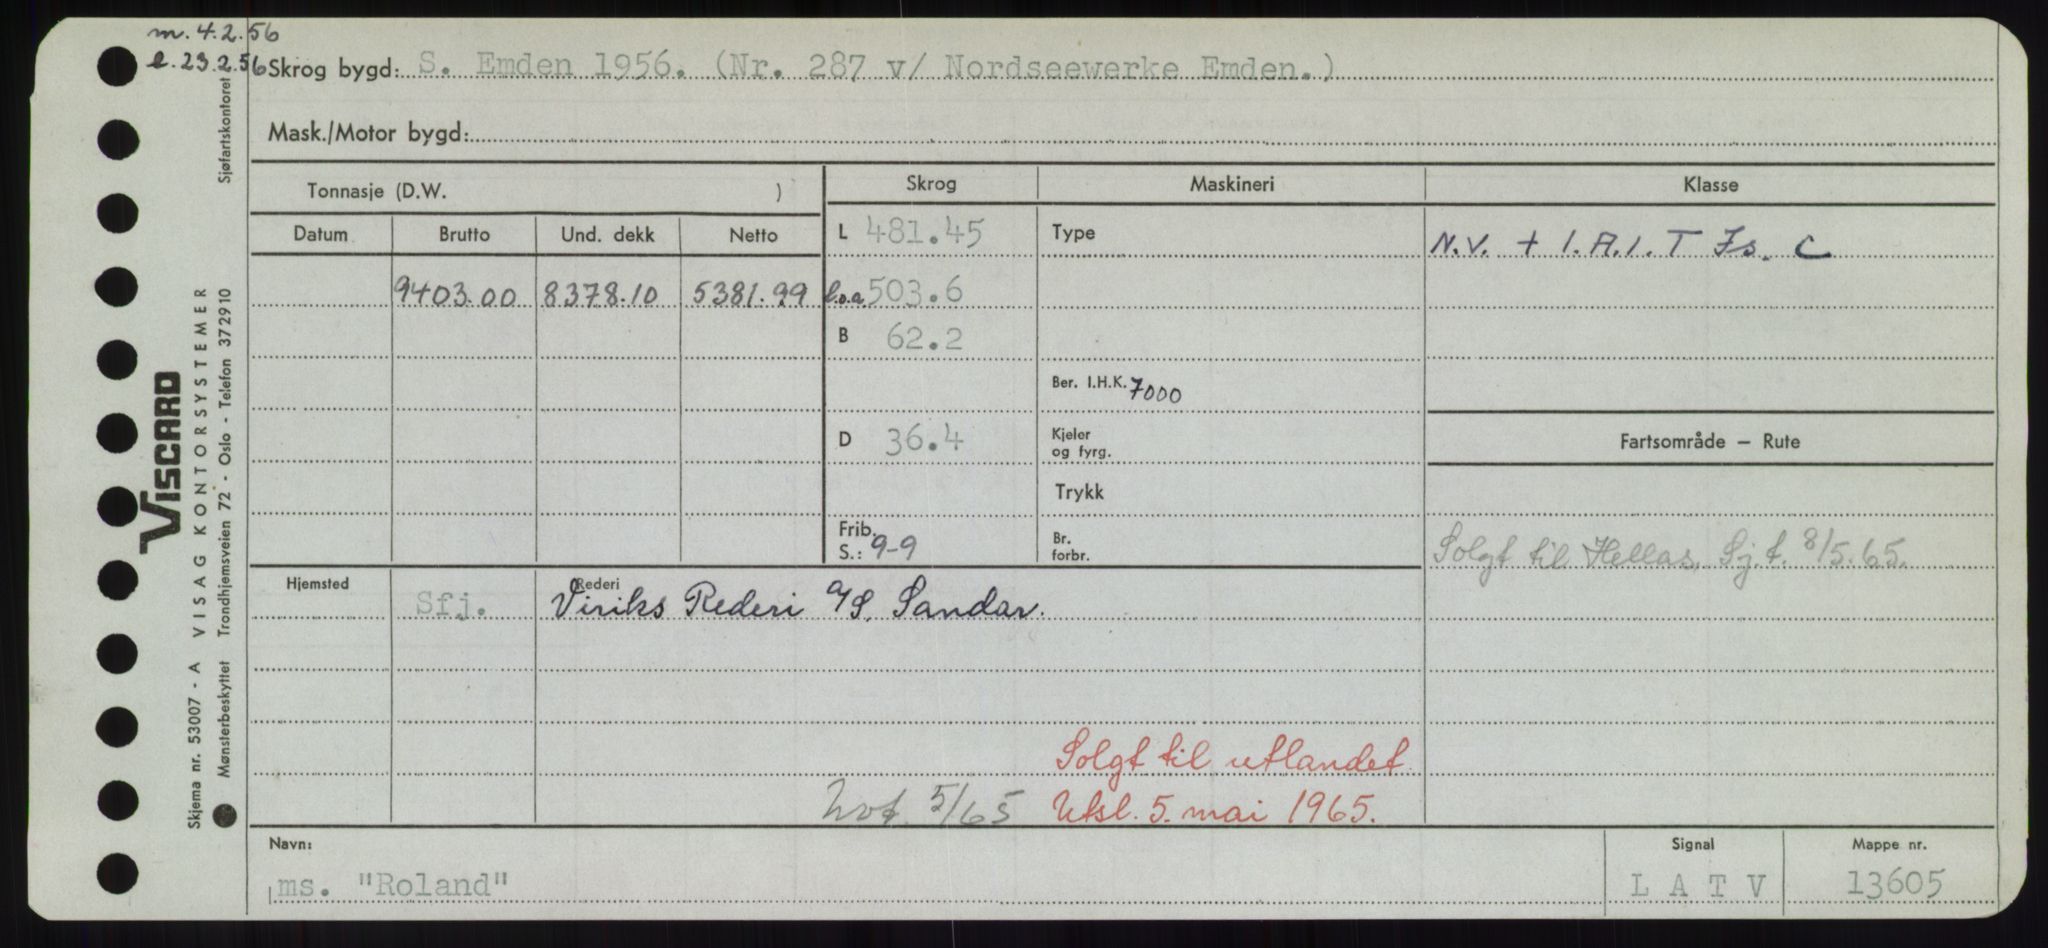 m. 4.2.56
l. 23.2.56
Skrog bygd: S. Emden 1956. (Nr. 287 v/ Nordseewerke Emden.)
Mask./Motor bygd:
Tonnasje (D.W. )
Skrog
Maskineri
Klasse
Datum
Brutto
Und. dekk
Netto
L 481.45
Type
N.V. + 1.A.1. T Is. C
9403.00 8378.10 5381.99
l.o.a. 503.6
B 62.2
Ber. I.H.K. 7000
D 36.4
Kjeler
og fyrg.
Fartsområde – Rute
Trykk
Frib.
S.: 9-9
Br.
forbr.
Solgt til Hellas, Sj.t. 8/5.65.
Hjemsted
Sfj.
Rederi
Viriks Rederi A/S, Sandar.
Solgt til utlandet
Not. 5/65
Utsl. 5. mai 1965.
Navn:
ms. "Roland"
Signal
L A T V
Mappe nr.
13605
VISCARD
Skjema nr. 53007 - A VISAG KONTORSYSTEMER
Mønsterbeskyttet Trondhjemsveien 72 - Oslo - Telefon 372910 Sjøfartskontoret